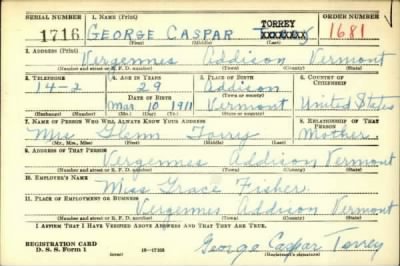 SERIAL NUMBER 1. NAME (Print) ORDER NUMBER
TORREY
1716 GEORGE CASPAR XXXXXXX 1681
(First) (Middle) (Last)
2. ADDRESS (Print)
Vergennes Addison Vermont
(Number and street or R. F. D. number) (Town) (County) (State)
3. TELEPHONE 4. AGE IN YEARS 5. PLACE OF BIRTH 6. COUNTRY OF CITIZENSHIP
14-2 29 Addison
DATE OF BIRTH (Town or county)
Mar 10 1911 Vermont United States
(Exchange) (Number) (Mo.) (Day) (Yr.) (State or country)
7. NAME OF PERSON WHO WILL ALWAYS KNOW YOUR ADDRESS 8. RELATIONSHIP OF THAT PERSON
Mrs Glenn Torry Mother
(Mr., Mrs., Miss) (First) (Middle) (Last)
9. ADDRESS OF THAT PERSON
Vergennes Addison Vermont
(Number and street or R. F. D. number) (Town) (County) (State)
10. EMPLOYER'S NAME
Miss Grace Fisher
11. PLACE OF EMPLOYMENT OR BUSINESS
Vergennes Addison Vermont
(Number and street or R. F. D. number) (Town) (County) (State)
I AFFIRM THAT I HAVE VERIFIED ABOVE ANSWERS AND THAT THEY ARE TRUE.
REGISTRATION CARD
D. S. S. Form 1 George Caspar Torrey
(Registrant's signature)